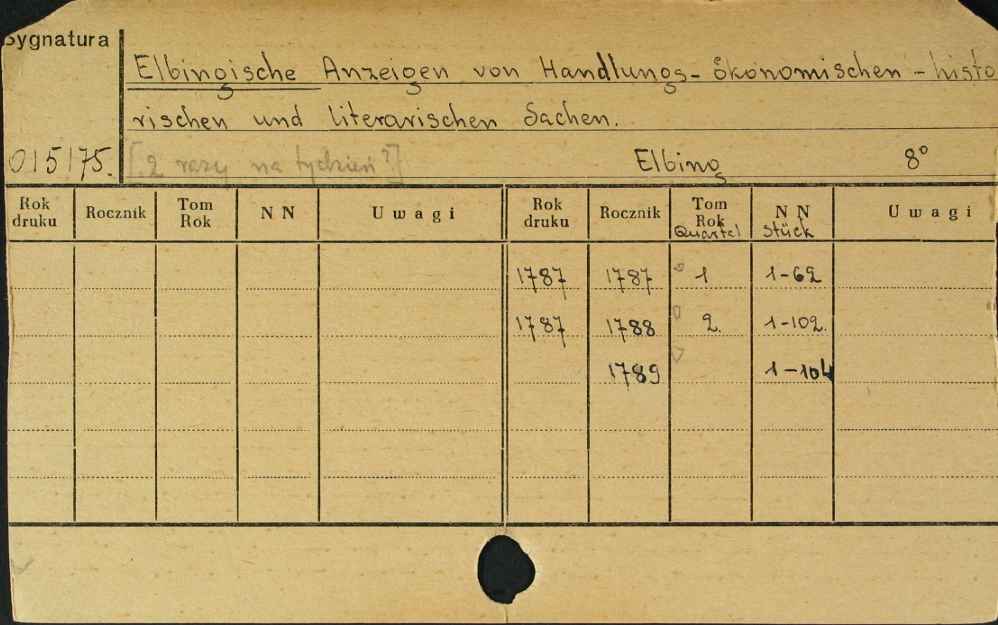 Sygnatura
Elbingische Anzeigen von Handlungs- ökonomischen - histo
rischen und literarischen Sachen.
015175. [2 razy na tydzień?] Elbing 8°
Rok druku Rocznik Tom Rok N N Uwagi Rok druku Rocznik Tom Rok Quartal N N Stück Uwagi
1787 1787 1 1-62
1787 1788 2. 1-102.
1789 1-104